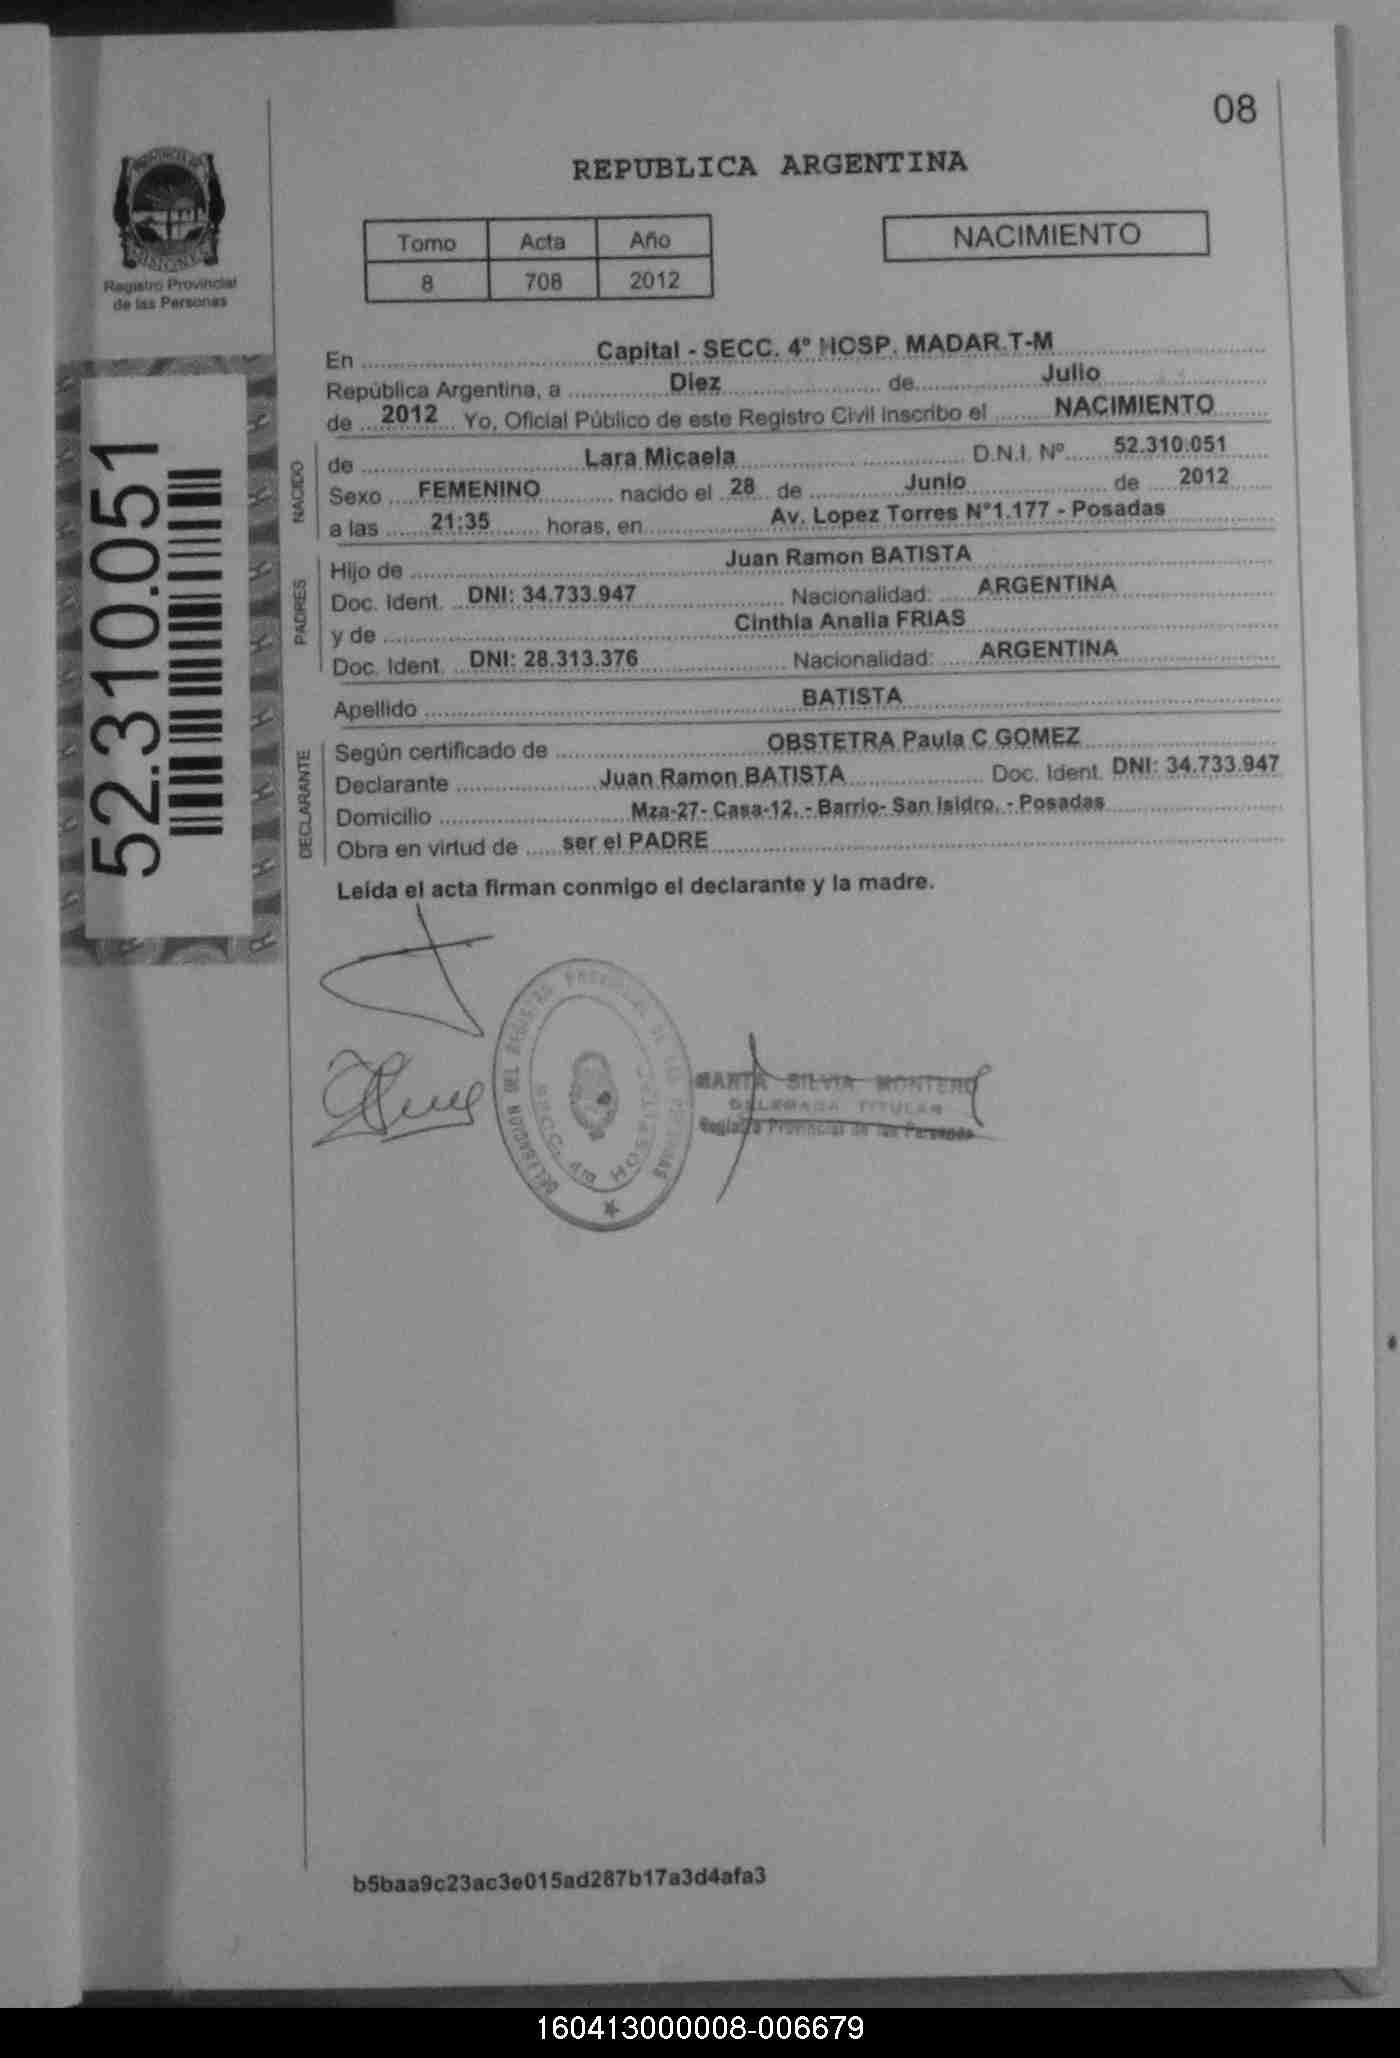 08
PROVINCIA DE
MISIONES
Registro Provincial
de las Personas
REPUBLICA ARGENTINA
Tomo Acta Año
8 708 2012
NACIMIENTO
52.310.051
En Capital - SECC. 4º HOSP. MADAR.T-M
República Argentina, a Diez de Julio
de 2012 Yo, Oficial Público de este Registro Civil inscribo el NACIMIENTO
NACIDO
de Lara Micaela D.N.I. Nº 52.310.051
Sexo FEMENINO nacido el 28 de Junio de 2012
a las 21:35 horas, en Av. Lopez Torres N°1.177 - Posadas
PADRES
Hijo de Juan Ramon BATISTA
Doc. Ident. DNI: 34.733.947 Nacionalidad: ARGENTINA
y de Cinthia Analia FRIAS
Doc. Ident. DNI: 28.313.376 Nacionalidad: ARGENTINA
Apellido BATISTA
DECLARANTE
Según certificado de OBSTETRA Paula C GOMEZ
Declarante Juan Ramon BATISTA Doc. Ident. DNI: 34.733.947
Domicilio Mza-27- Casa-12. - Barrio- San Isidro. - Posadas
Obra en virtud de ser el PADRE
Leída el acta firman conmigo el declarante y la madre.
MARTA SILVIA MONTERO
DELEGADA TITULAR
Registro Provincial de las Personas
b5baa9c23ac3e015ad287b17a3d4afa3
160413000008-006679